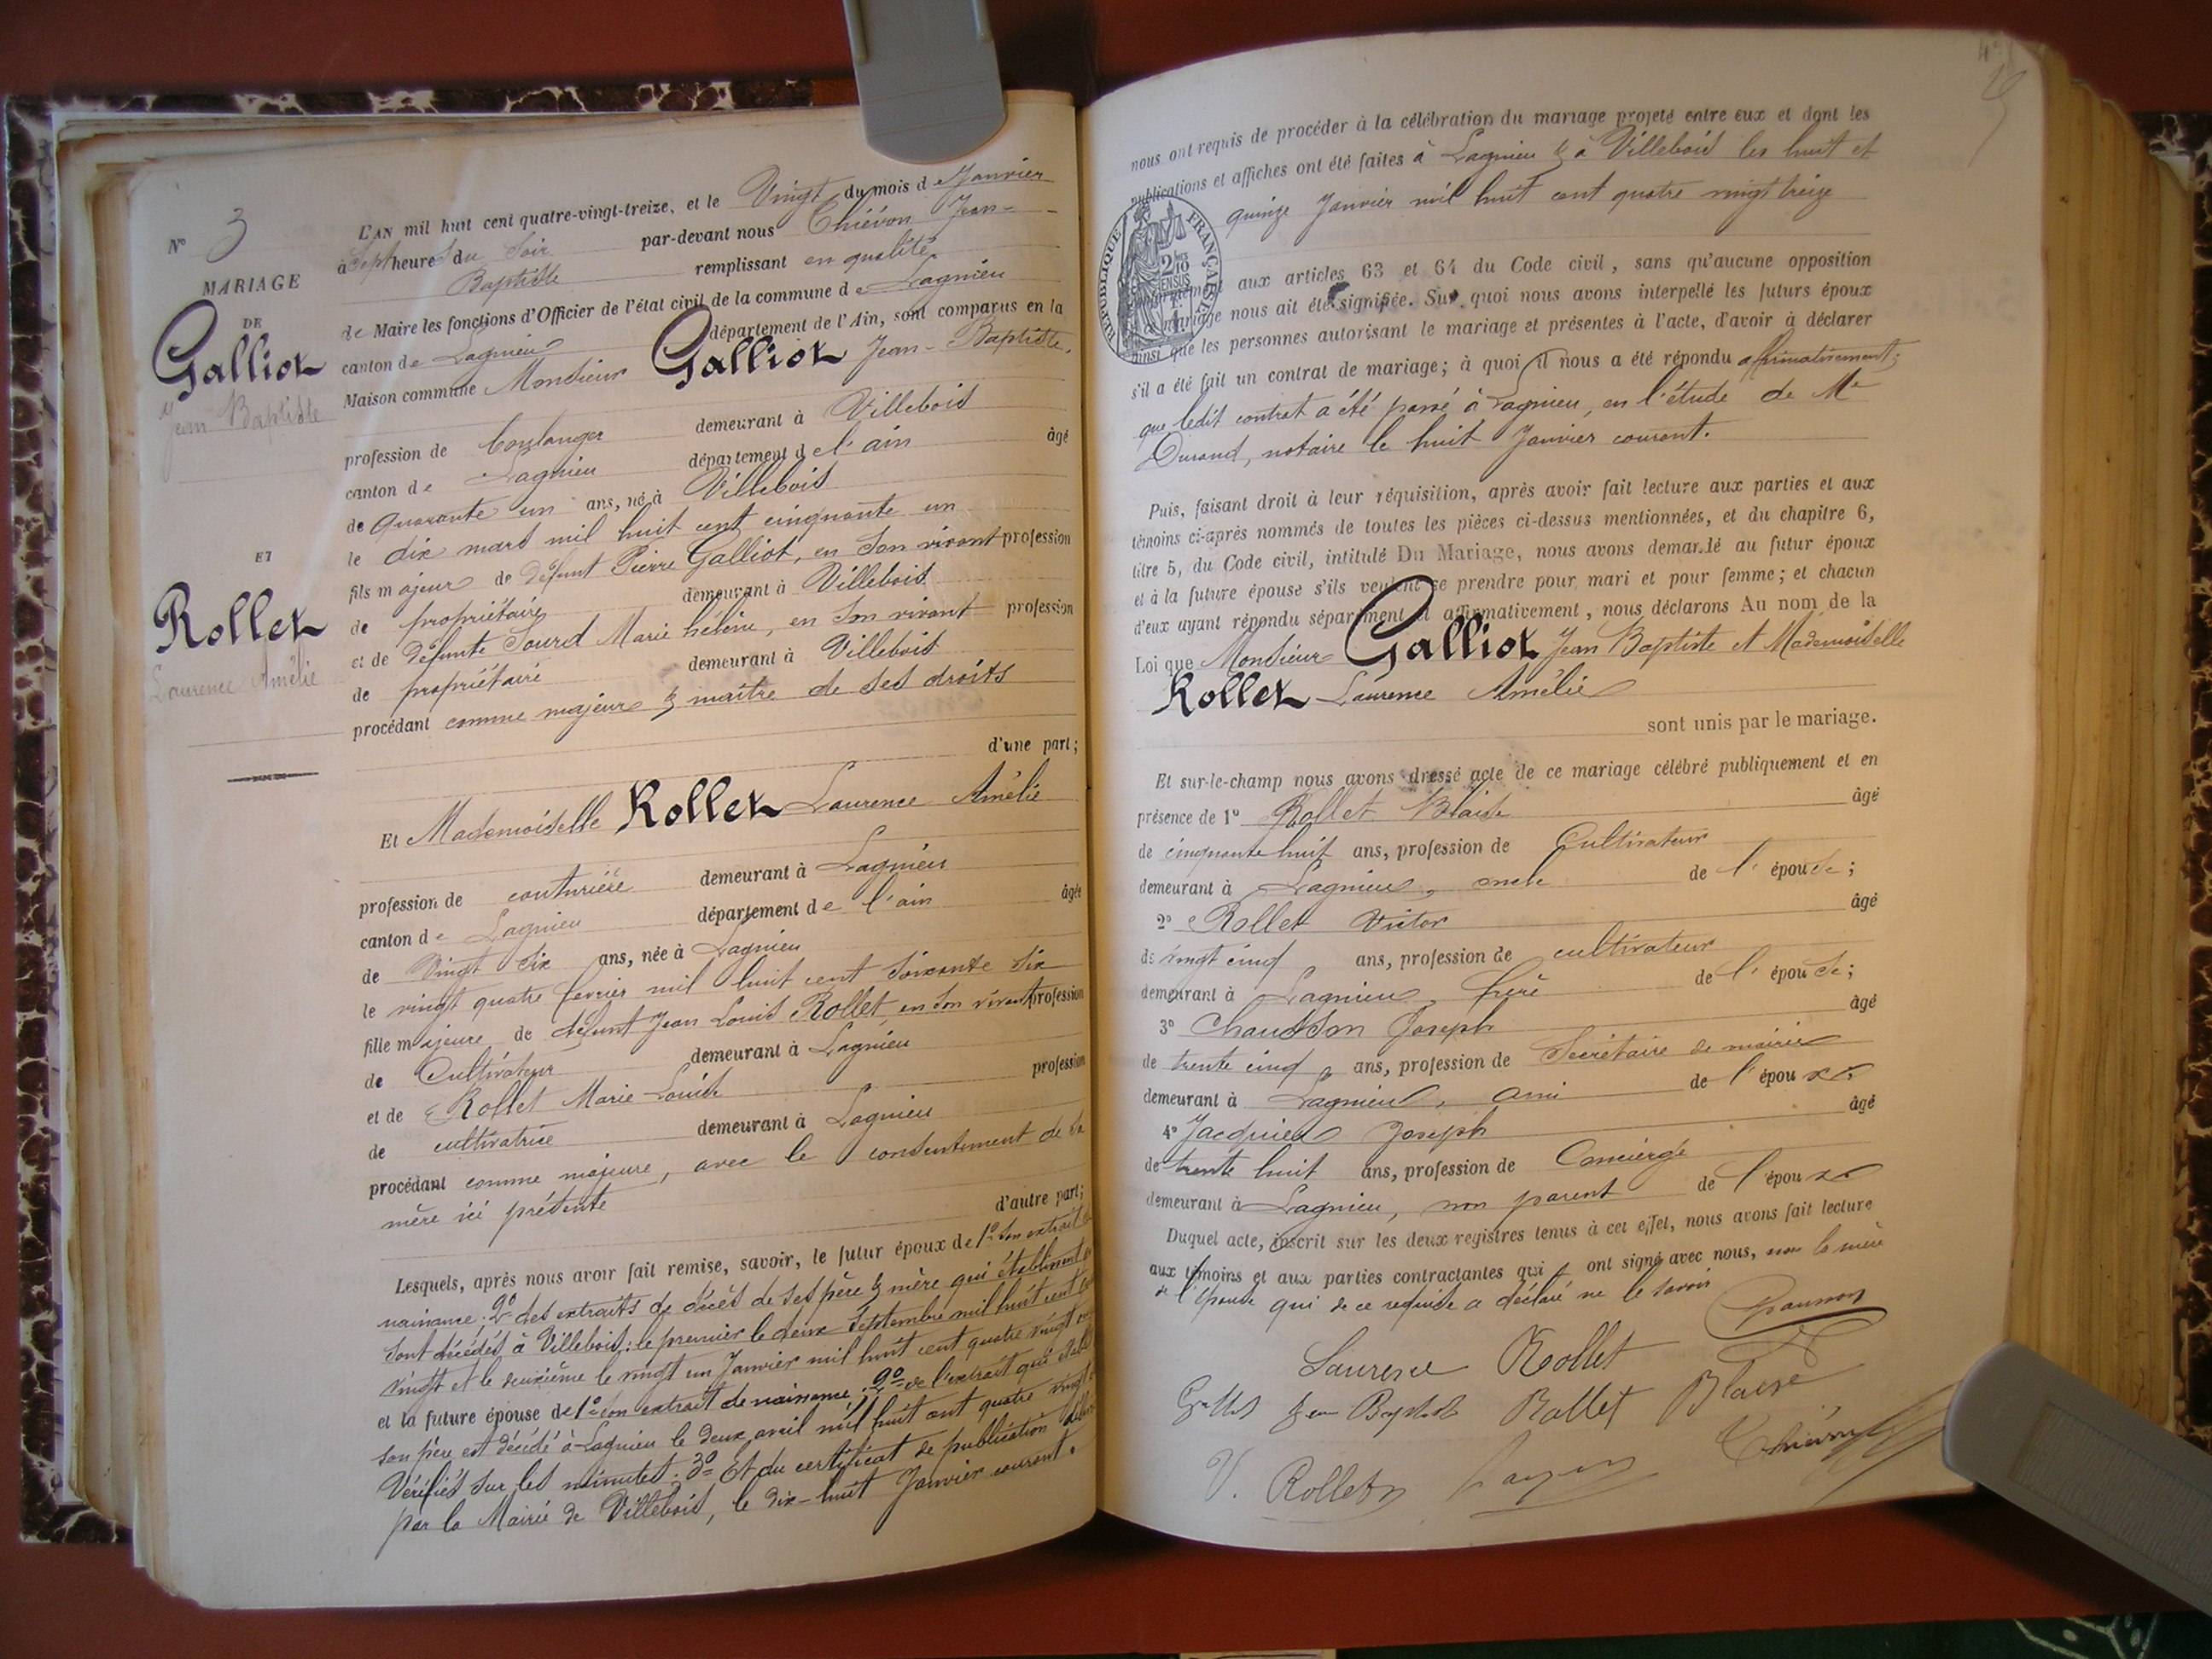 N° 3
MARIAGE
DE
Galliot
Jean Baptiste
ET
Rollet
Laurence Amélie
L'AN mil huit cent quatre-vingt-treize, et le Vingt du mois de Janvier
à Sept heures du Soir par-devant nous Chiévron Jean-
Baptiste remplissant en qualité
de Maire les fonctions d'Officier de l'état civil de la commune de Lagnieu
canton de Lagnieu département de l'Ain, sont comparus en la
Maison commune Monsieur Galliot Jean-Baptiste,
profession de boulanger demeurant à Villebois
canton de Lagnieu département de l'ain âgé
de quarante un ans, né à Villebois
le dix mars mil huit cent cinquante un
fils majeur de défunt Pierre Galliot, en son vivant profession
de propriétaire demeurant à Villebois
et de défunte Sourd Marie hélène, en son vivant profession
de propriétaire demeurant à Villebois
procédant comme majeur & maître de ses droits
d'une part;
Et Mademoiselle Rollet Laurence Amélie
profession de couturière demeurant à Lagnieu
canton de Lagnieu département de l'ain âgée
de Vingt six ans, née à Lagnieu
le vingt quatre fevrier mil huit cent soixante six
fille majeure de défunt Jean Louis Rollet, en son vivant profession
de Cultivateur demeurant à Lagnieu
et de Rollet Marie-Louise profession
de cultivatrice demeurant à Lagnieu
procédant comme majeure, avec le consentement de sa
mère ici présente
d'autre part;
Lesquels, après nous avoir fait remise, savoir, le futur époux de 1° son extrait de
naissance; 2° des extraits de décès de ses père & mère qui établissent
sont décédés à Villebois: le premier le deux Septembre mil huit cent
vingt et le deuxième le vingt un Janvier mil huit cent quatre vingt
et la future épouse de 1° son extrait de naissance; 2° de l'extrait qui établit
son père est décédé à Lagnieu le deux avril mil huit cent quatre vingt
Vérifiés sur les minutes; 3° Et du certificat de publication délivré
par la Mairie de Villebois, le dix-huit Janvier courant.
nous ont requis de procéder à la célébration du mariage projeté entre eux et dont les
publications et affiches ont été faites à Lagnieu & à Villebois les huit et
quinze Janvier mil huit cent quatre vingt treize
RÉPUBLIQUE FRANÇAISE
2/10 EN SUS
conformément aux articles 63 et 64 du Code civil, sans qu'aucune opposition
au mariage nous ait été signifiée. Sur quoi nous avons interpellé les futurs époux
ainsi que les personnes autorisant le mariage et présentes à l'acte, d'avoir à déclarer
s'il a été fait un contrat de mariage; à quoi il nous a été répondu affirmativement;
que ledit contrat a été passé à Lagnieu, en l'étude de Me
Durand, notaire le huit Janvier courant.
Puis, faisant droit à leur réquisition, après avoir fait lecture aux parties et aux
témoins ci-après nommés de toutes les pièces ci-dessus mentionnées, et du chapitre 6,
titre 5, du Code civil, intitulé Du Mariage, nous avons demandé au futur époux
et à la future épouse s'ils veulent se prendre pour mari et pour femme; et chacun
d'eux ayant répondu séparément et affirmativement, nous déclarons Au nom de la
Loi que Monsieur Galliot Jean Baptiste et Mademoiselle
Rollet Laurence Amélie
sont unis par le mariage.
Et sur-le-champ nous avons dressé acte de ce mariage célébré publiquement et en
présence de 1° Rollet Blaise âgé
de cinquante huit ans, profession de Cultivateur
demeurant à Lagnieu, oncle de l'épouse;
2° Rollet Victor âgé
de vingt cinq ans, profession de cultivateur
demeurant à Lagnieu, frère de l'épouse;
3° Chausson Joseph âgé
de trente cinq ans, profession de Secrétaire de mairie
demeurant à Lagnieu, ami de l'époux
4° Jacquier Joseph âgé
de trente huit ans, profession de Concierge
demeurant à Lagnieu, non parent de l'époux
Duquel acte, inscrit sur les deux registres tenus à cet effet, nous avons fait lecture
aux témoins et aux parties contractantes qui ont signé avec nous, non la mère
de l'épouse qui de ce requise a déclaré ne le savoir
Laurence Rollet
Jean Baptiste Rollet Blaise
V. Rollet